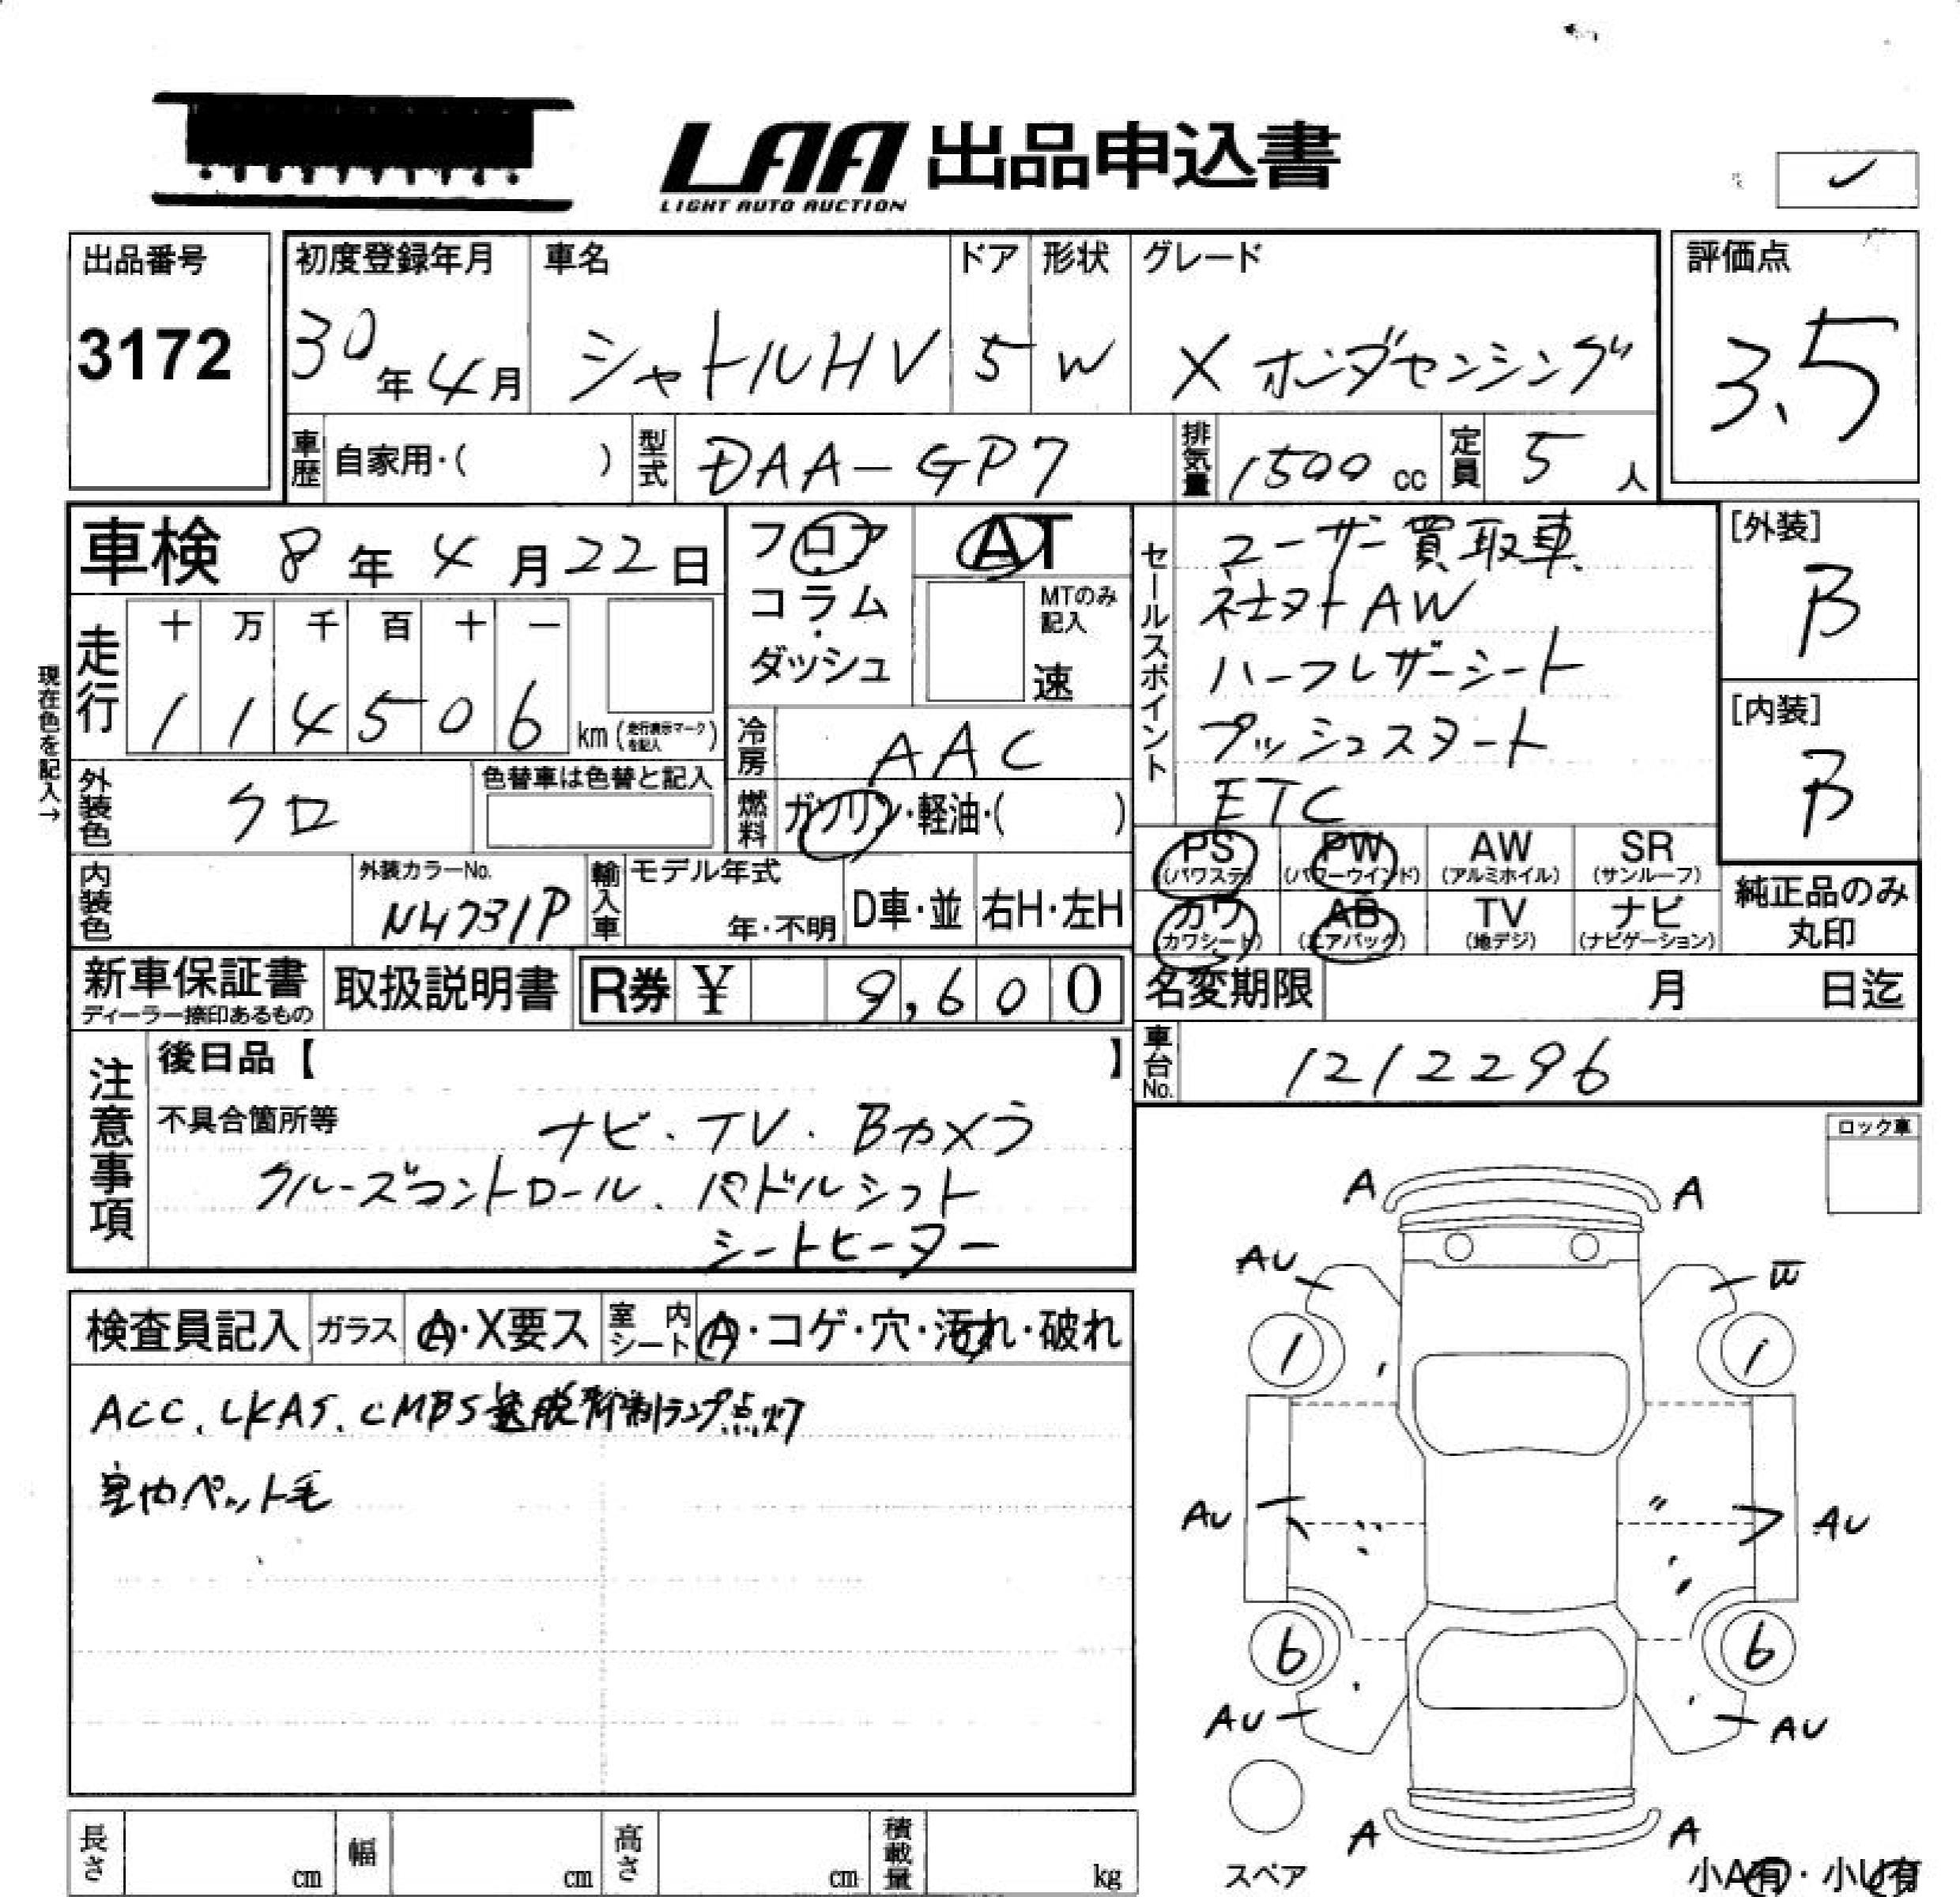 LAA 出品申込書
LIGHT AUTO AUCTION
✓
出品番号
3172
初度登録年月
30年4月
車名
シャトルHV
ドア
5
形状
W
グレード
X ホンダセンシング
評価点
3.5
車歴 自家用・( )
型式 DAA-GP7
排気量 1500 cc
定員 5 人
車検 8年4月22日
走行
十 万 千 百 十 一
1 1 4 5 0 6 km(走行表示マークを記入)
現在色を記入→
外装色 クロ
色替車は色替と記入
内装色
外装カラーNo.
NH731P
フロア・コラム・ダッシュ
AT
MTのみ記入
速
冷房 AAC
燃料 ガソリン・軽油・( )
輸入車
モデル年式
年・不明
D車・並
右H・左H
セールスポイント
ユーザー買取車
社外AW
ハーフレザーシート
プッシュスタート
ETC
[外装]
B
[内装]
B
PS (パワステ)
PW (パワーウインド)
AW (アルミホイル)
SR (サンルーフ)
カワ (カワシート)
AB (エアバック)
TV (地デジ)
ナビ (ナビゲーション)
純正品のみ
丸印
新車保証書
ディーラー捺印あるもの
取扱説明書
R券 ¥ 9,600
名変期限 月 日迄
車台No. 1212296
注意事項
後日品【 】
不具合箇所等
ナビ・TV・Bカメラ
クルーズコントロール、パドルシフト
シートヒーター
ロック車
検査員記入
ガラス A・X要ス
室内シート A・コゲ・穴・汚れ・破れ
ACC、LKAS、CMBS 抑制ランプ点灯
室内ペット毛
A A
AU
1 1
AU AU
6 6
AU AU
A A
スペア
小A有・小U有
長さ cm
幅 cm
高さ cm
積載量 kg